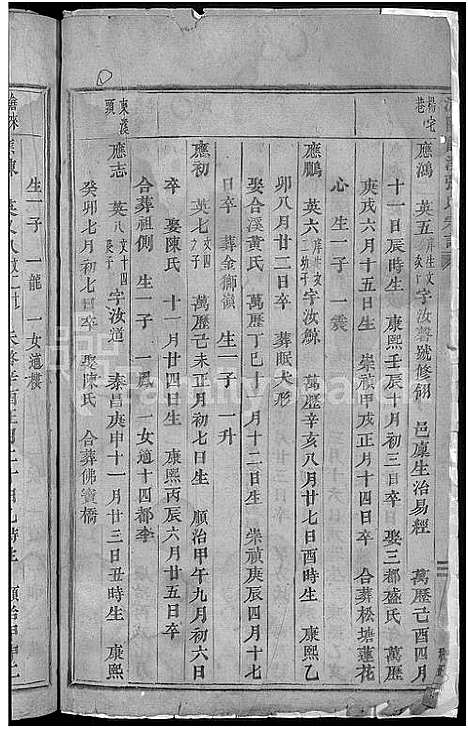 楊宅巷
應鴻 英五 庠生文 字汝磬號修翎 邑廩生治易經 萬歷己酉四月
十一日辰時生 康熙壬辰十月初三日卒 娶三都盛氏 萬歷
庚戌六月十五日生 崇禎甲戌正月十四日卒 合葬松塘蓮花
心 生一子 一震
應鵬 英六 庠生文 字汝鯨 萬歷辛亥八月廿七日酉時生 康熙乙
卯八月廿二日卒 葬眠犬形
娶合溪黃氏 萬歷丁巳十一月十二日生 崇禎庚辰四月十七
日卒 葬金獅嶺 生一子 一升
應初 英七 文四九子 萬歷己未正月初七日生 順治甲午九月初六日
卒 娶陳氏 十一月廿四日生 康熙丙辰六月廿五日卒
合葬祖側 生一子 一鳳 一女適十四都李
東溪頭
應志 英八 文十四長子 字汝道 泰昌庚申十一月廿三日丑時生 康熙
癸卯七月初七日卒 娶陳氏 合葬佛賓橋
生一子 一龍 一女適樓